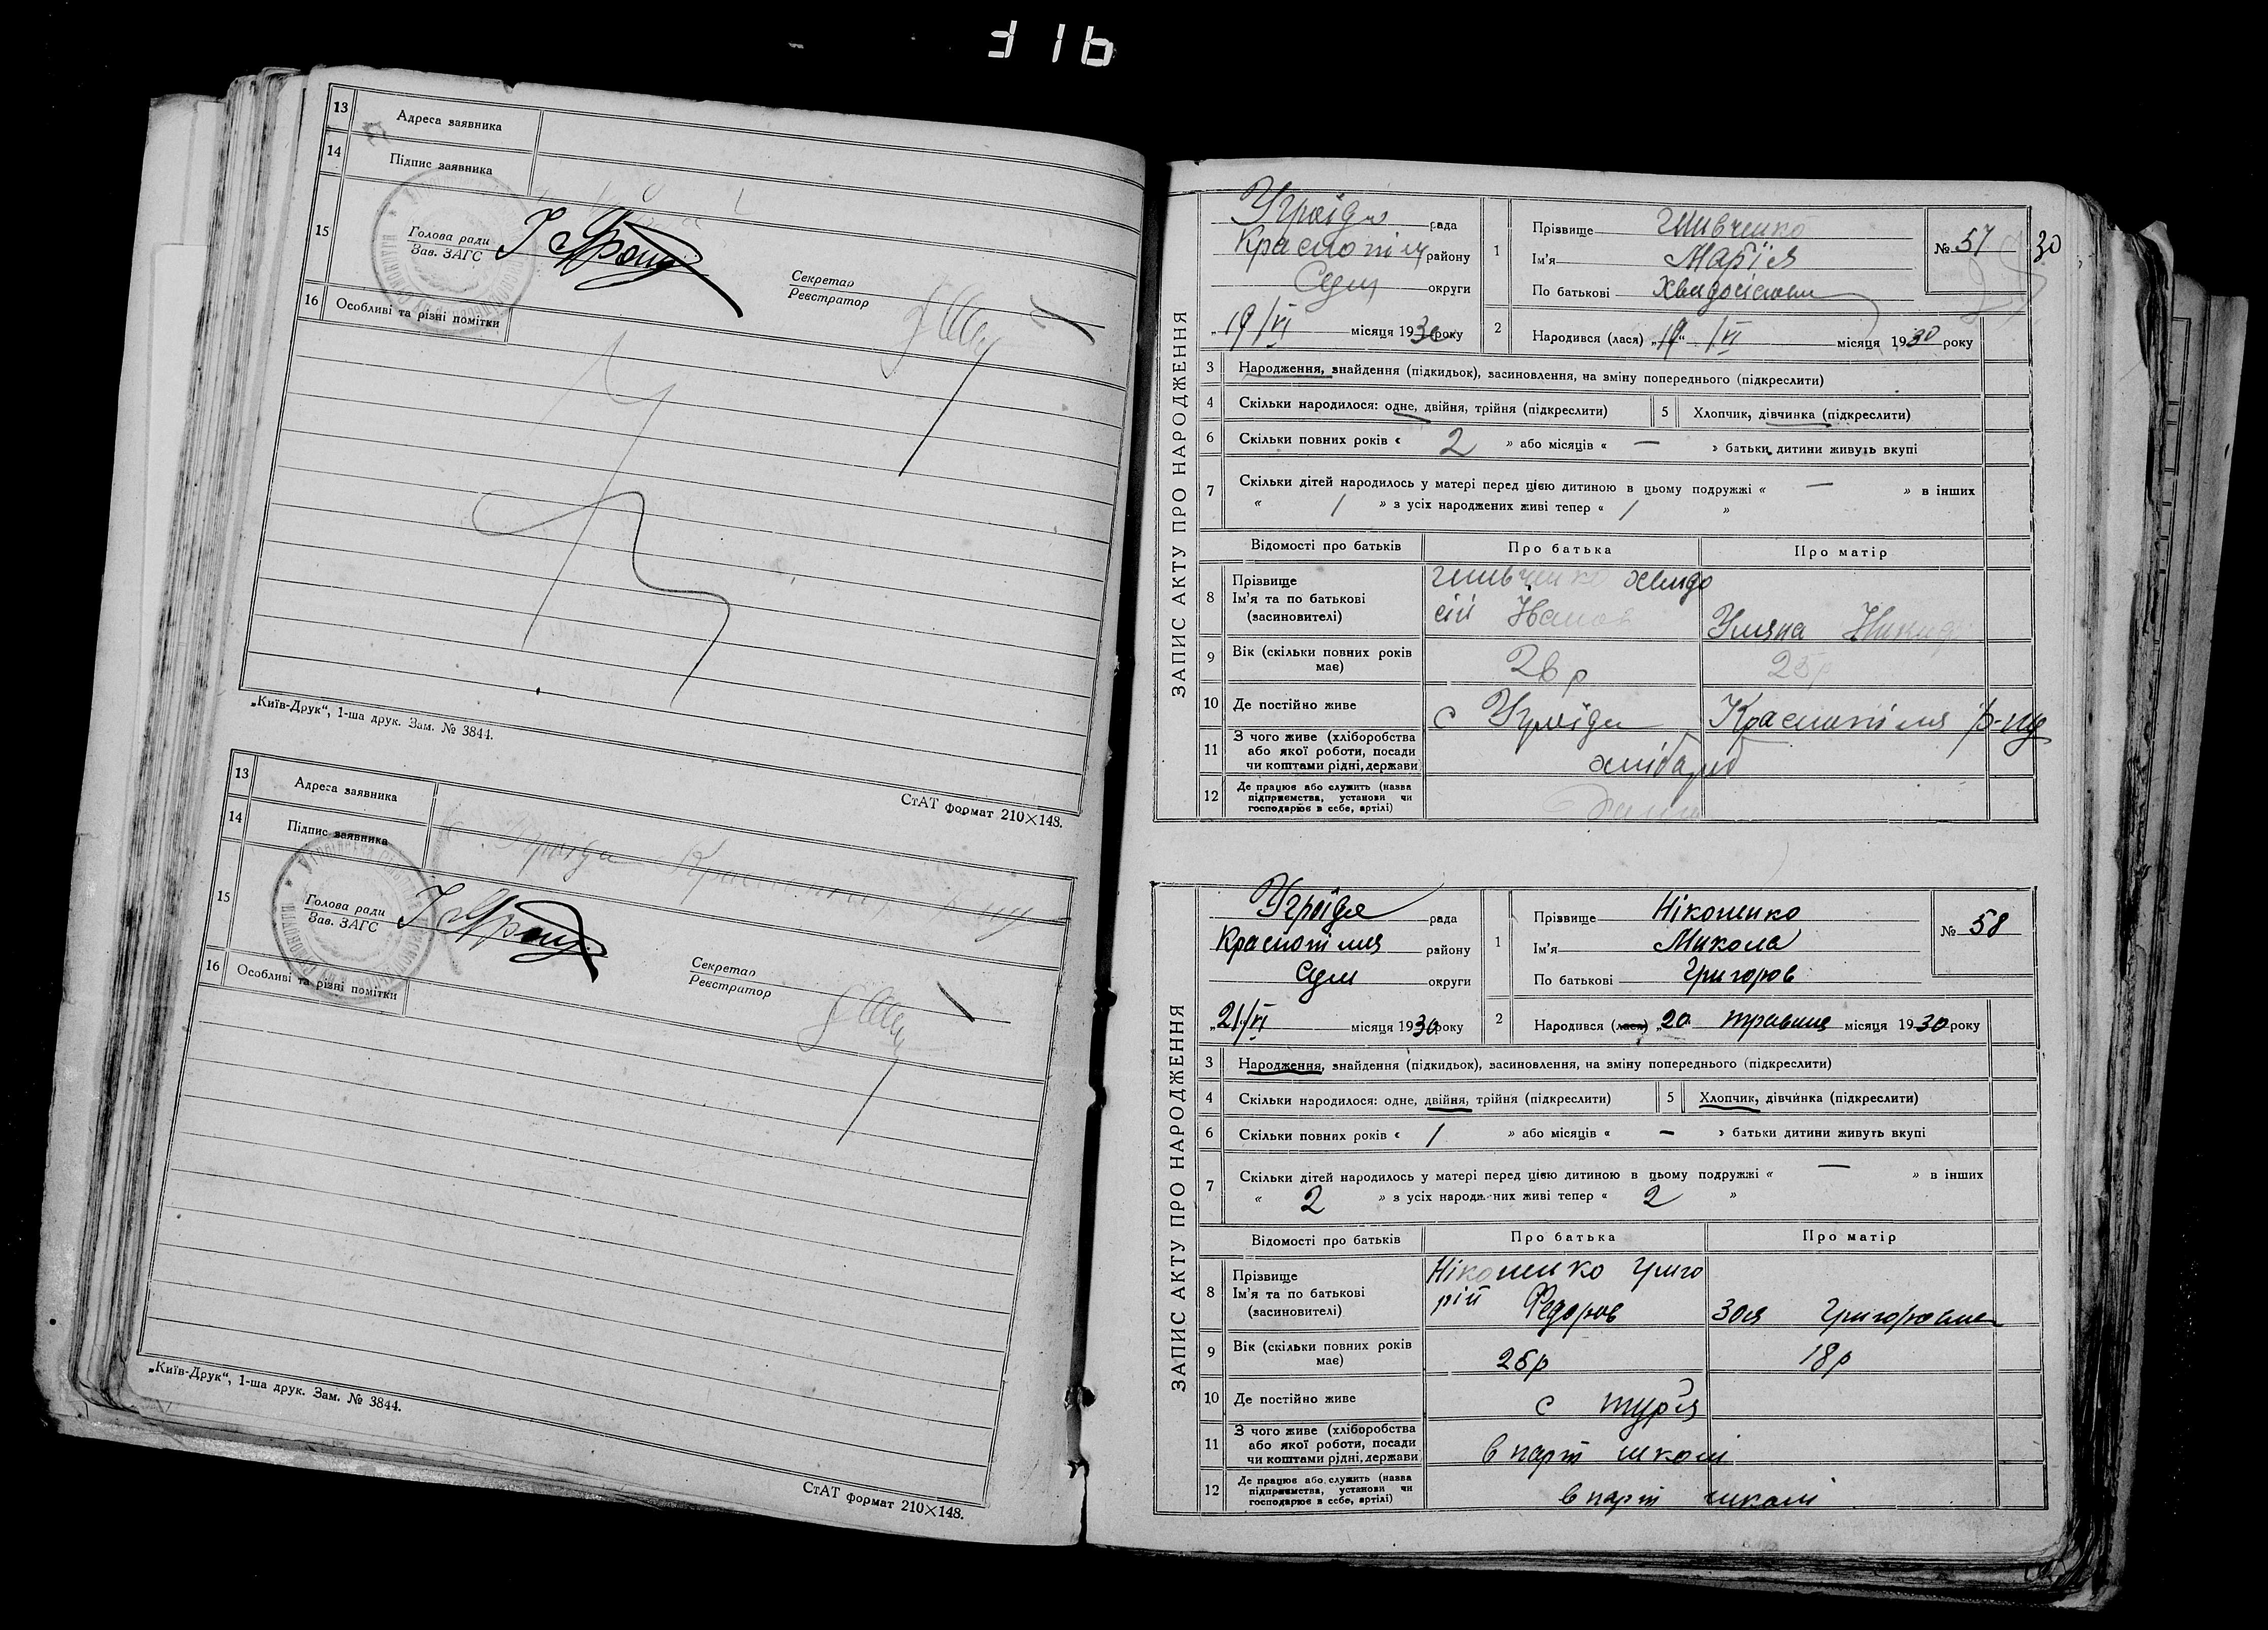 13 Адреса заявника
14 Підпис заявника
15 Голова ради
Зав. ЗАГС
Секретар
Реєстратор
16 Особливі та різні помітки
„Київ-Друк“, 1-ша друк. Зам. № 3844.
СтАТ формат 210×148.
13 Адреса заявника
14 Підпис заявника
15 Голова ради
Зав. ЗАГС
Секретар
Реєстратор
16 Особливі та різні помітки
„Київ-Друк“, 1-ша друк. Зам. № 3844.
СтАТ формат 210×148.
30
ЗАПИС АКТУ ПРО НАРОДЖЕННЯ
Угроїди рада
Краснопіл району
Сум округи
„19/VI місяця 1930 року
1 Прізвище
Ім'я Марія
По батькові
№ 57
2 Народився (лася) „19“ /VI місяця 1930 року
3 Народження, знайдення (підкидьок), засиновлення, на зміну попереднього (підкреслити)
4 Скільки народилося: одне, двійня, трійня (підкреслити)
5 Хлопчик, дівчинка (підкреслити)
6 Скільки повних років « 2 » або місяців « — » батьки дитини живуть вкупі
7 Скільки дітей народилось у матері перед цією дитиною в цьому подружжі « — » в інших
« 1 » з усіх народжених живі тепер « 1 »
Відомості про батьків Про батька Про матір
8 Прізвище
Ім'я та по батькові
(засновителі)
Іванов
Уляна
9 Вік (скільки повних років має) 26 р 25 р
10 Де постійно живе с Угроїди Краснопілля р-ну
11 З чого живе (хліборобства
або якої роботи, посади
чи коштами рідні, держави
12 Де працює або служить (назва
підприємства, установи чи
господарює в себе, артілі)
ЗАПИС АКТУ ПРО НАРОДЖЕННЯ
Угроїди рада
Краснопілля району
Сум округи
„21/VI місяця 1930 року
1 Прізвище Ніконенко
Ім'я Микола
По батькові Григоров
№ 58
2 Народився (лася) „20 травня місяця 1930 року
3 Народження, знайдення (підкидьок), засиновлення, на зміну попереднього (підкреслити)
4 Скільки народилося: одне, двійня, трійня (підкреслити)
5 Хлопчик, дівчинка (підкреслити)
6 Скільки повних років « 1 » або місяців « — » батьки дитини живуть вкупі
7 Скільки дітей народилось у матері перед цією дитиною в цьому подружжі « — » в інших
« 2 » з усіх народжених живі тепер « 2 »
Відомості про батьків Про батька Про матір
8 Прізвище
Ім'я та по батькові
(засновителі)
Ніконенко Григо
рій Федоров
Зоя Григоровна
9 Вік (скільки повних років має) 26р 18р
10 Де постійно живе с Тур'я
11 З чого живе (хліборобства
або якої роботи, посади
чи коштами рідні, держави
в парт школі
12 Де працює або служить (назва
підприємства, установи чи
господарює в себе, артілі)
в парт школі